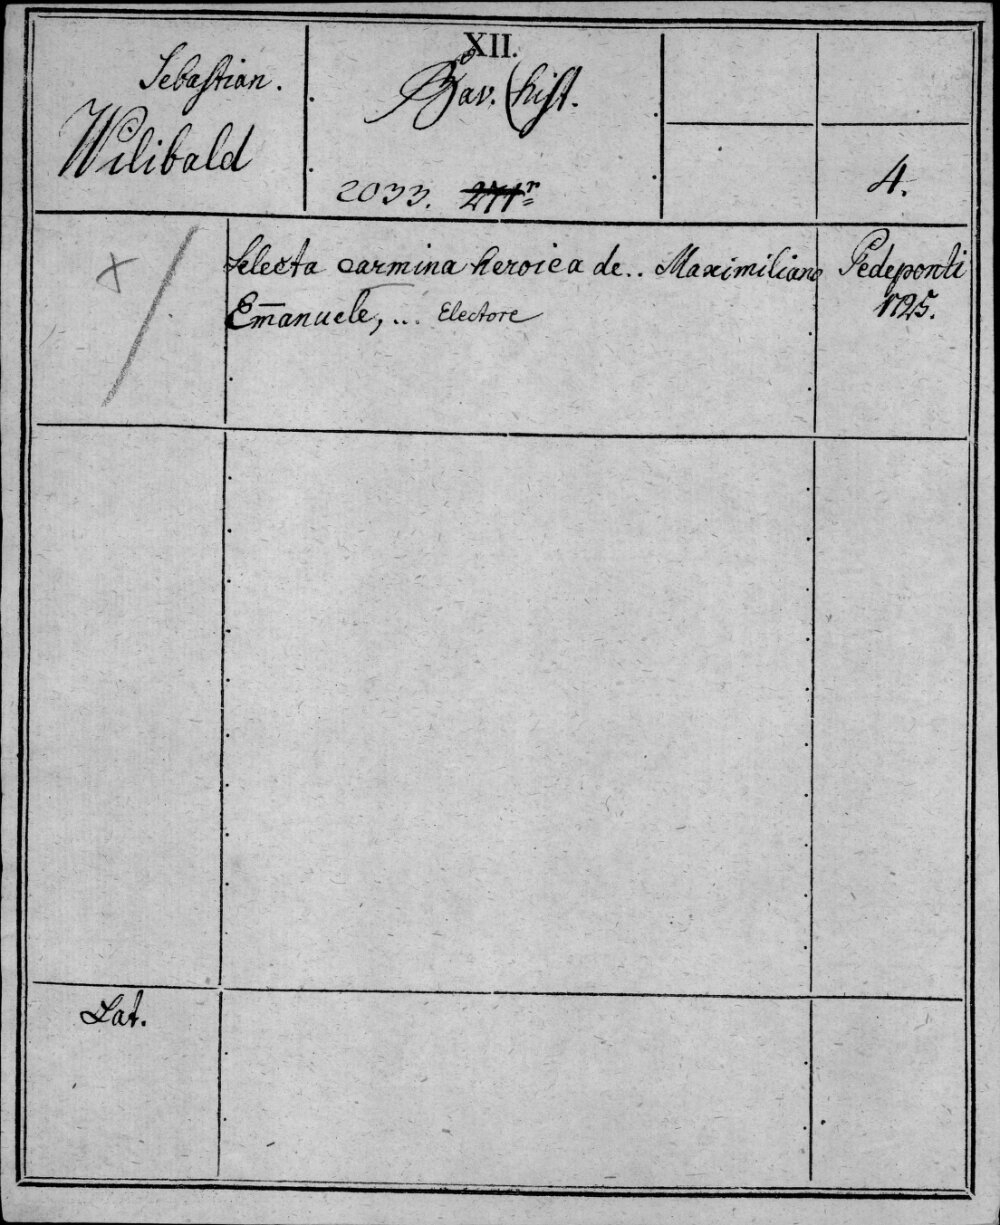 XII.
Sebastian.
Wilibald
Bav. hist.
2033. 271r
4.
Selecta carmina heroica de.. Maximiliano
Em̅anuele, ... Electore
Pedeponti
1725.
Lat.